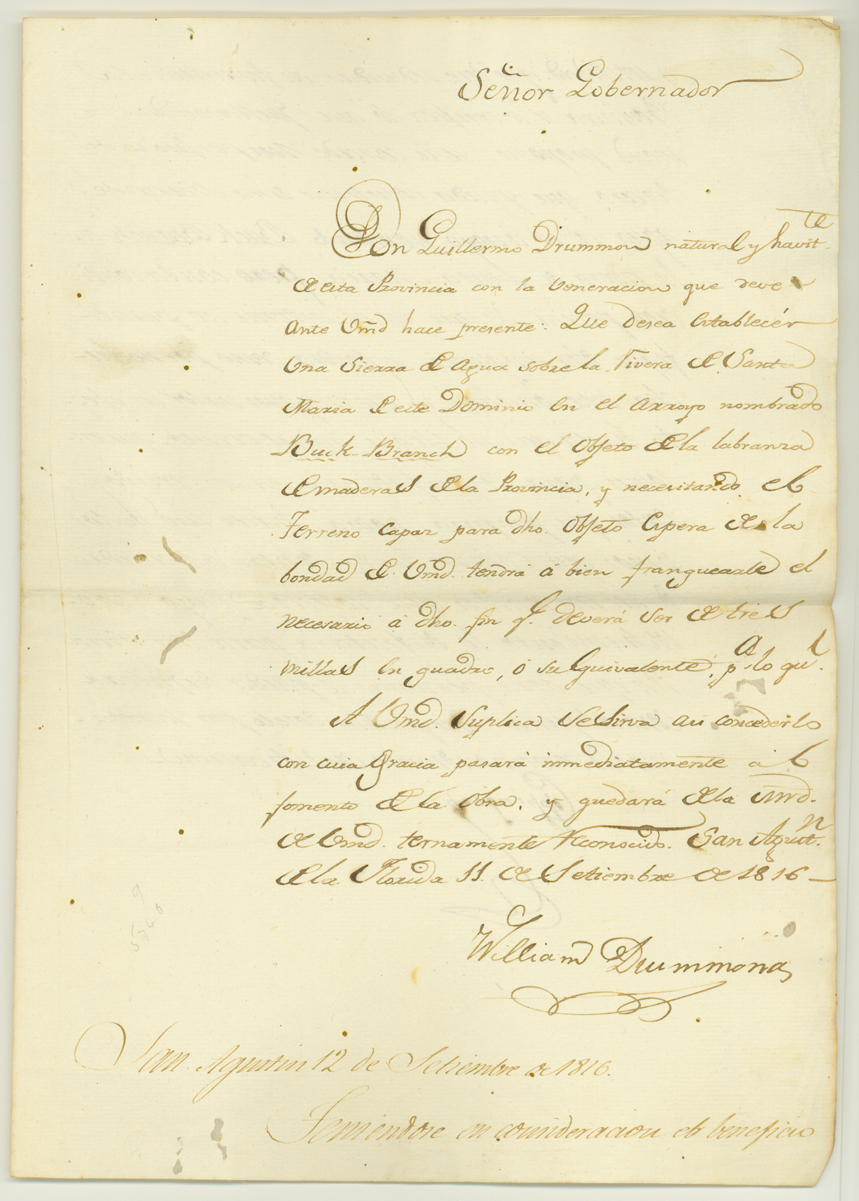 Señor Gobernador
Don Guillermo Drummon natural y havit.te
de esta Provincia con la veneracion que deve
ante Vmd hace presente: Que desea establecér
una sierra de agua sobre la rivera de Santa
Maria de este Dominio en el arroyo nombrado
Buck Branch con el objeto de la labranza
de maderas de la Provincia, y necesitando el
terreno capaz para dho. objeto espera de la
bondad de Vmd. tendrá á bien franquearle el
necesario á dho. fin q.e deverá ser de tres
millas en quadro, ó su equivalente, p.a lo qu.l
A Vmd. suplica se sirva asi concederlo
con cuia gracia pasará immediatamente al
fomento de la obra, y quedará de la mrd.
de Vmd. ternamente reconocido. San Agust.n
de la Florida 11 de Setiembre de 1816
William Drummond
San Agustin 12 de Setiembre de 1816.
Teniendose en consideracion el beneficio